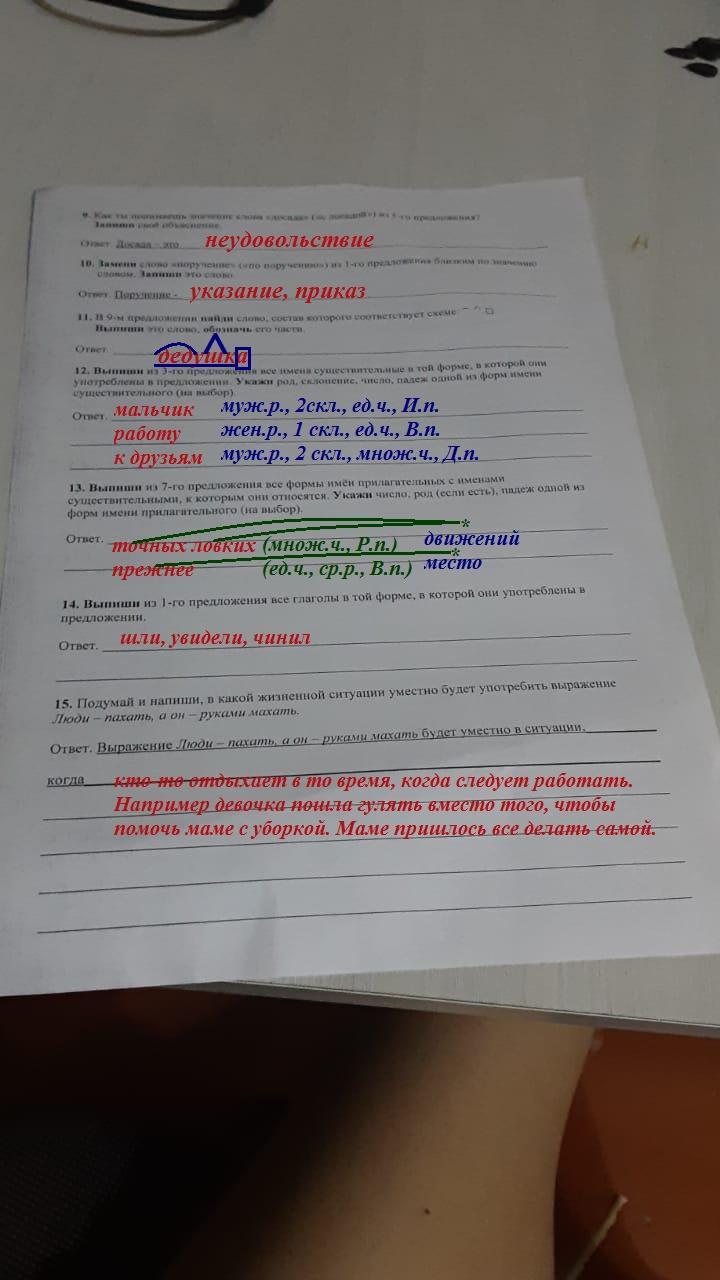 9. Как ты понимаешь значение слова «досада» (с досадой) из 5-го предложения?
Запиши своё объяснение.
Ответ. Досада – это неудовольствие
10. Замени слово «поручение» («по поручению») из 1-го предложения близким по значению
словом. Запиши это слово.
Ответ. Поручение - указание, приказ
11. В 9-м предложении найди слово, состав которого соответствует схеме: ⌒ ^ □
Выпиши это слово, обозначь его части.
Ответ. дедушка
12. Выпиши из 3-го предложения все имена существительные в той форме, в которой они
употреблены в предложении. Укажи род, склонение, число, падеж одной из форм имени
существительного (на выбор).
Ответ. мальчик муж.р., 2скл., ед.ч., И.п.
работу жен.р., 1 скл., ед.ч., В.п.
к друзьям муж.р., 2 скл., множ.ч., Д.п.
13. Выпиши из 7-го предложения все формы имён прилагательных с именами
существительными, к которым они относятся. Укажи число, род (если есть), падеж одной из
форм имени прилагательного (на выбор).
Ответ. точных ловких (множ.ч., Р.п.) движений*
прежнее (ед.ч., ср.р., В.п.) место*
14. Выпиши из 1-го предложения все глаголы в той форме, в которой они употреблены в
предложении.
Ответ. шли, увидели, чинил
15. Подумай и напиши, в какой жизненной ситуации уместно будет употребить выражение
Люди – пахать, а он – руками махать.
Ответ. Выражение Люди – пахать, а он – руками махать будет уместно в ситуации,
когда кто-то отдыхает в то время, когда следует работать.
Например девочка пошла гулять вместо того, чтобы
помочь маме с уборкой. Маме пришлось все делать самой.